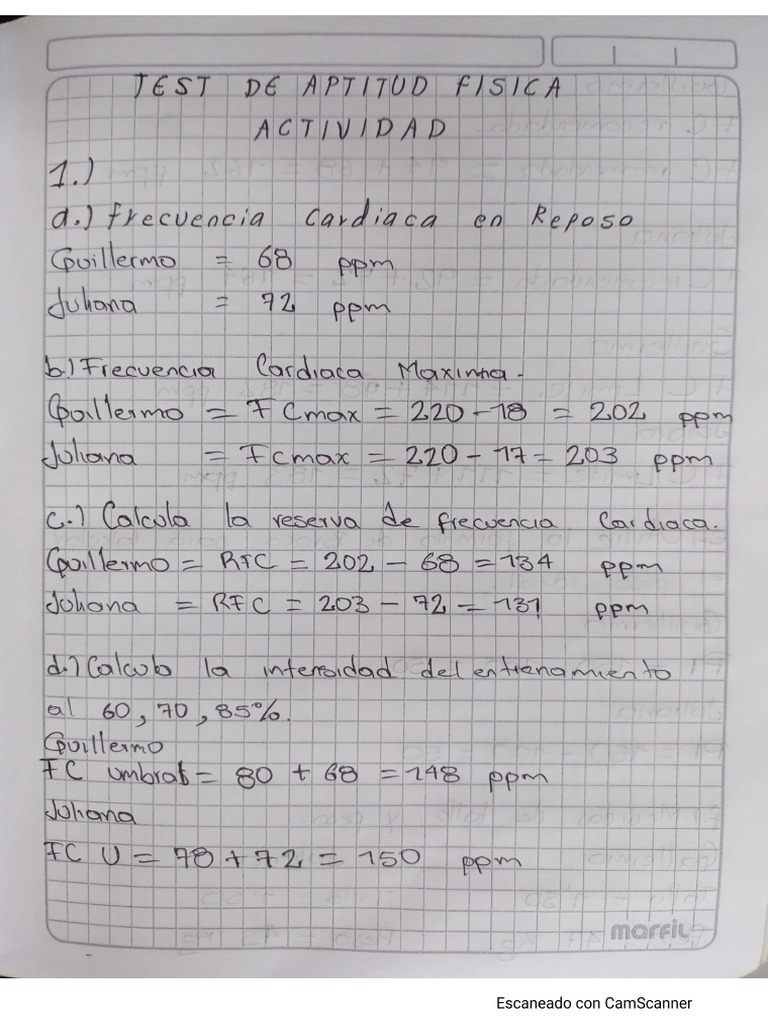 TEST DE APTITUD FISICA
ACTIVIDAD
1.)
a.) frecuencia cardiaca en Reposo
Guillermo = 68 ppm
Juliana = 72 ppm
b.) Frecuencia Cardiaca Maxima.
Guillermo = FCmax = 220 - 18 = 202 ppm
Juliana = Fcmax = 220 - 17 = 203 ppm
c.) Calcula la reserva de frecuencia Cardiaca.
Guillermo = RFC = 202 - 68 = 134 ppm
Johana = RFC = 203 - 72 = 131 ppm
d.) Calculo la intensidad del entrenamiento
al 60, 70, 85%.
Guillermo
FC umbral = 80 + 68 = 148 ppm
Johana
FC U = 78 + 72 = 150 ppm
marfil
Escaneado con CamScanner